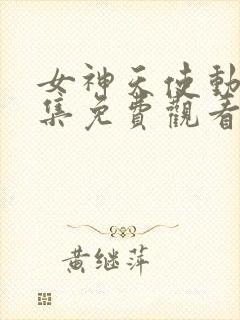 女神天使動
集免費觀看
黄继萍